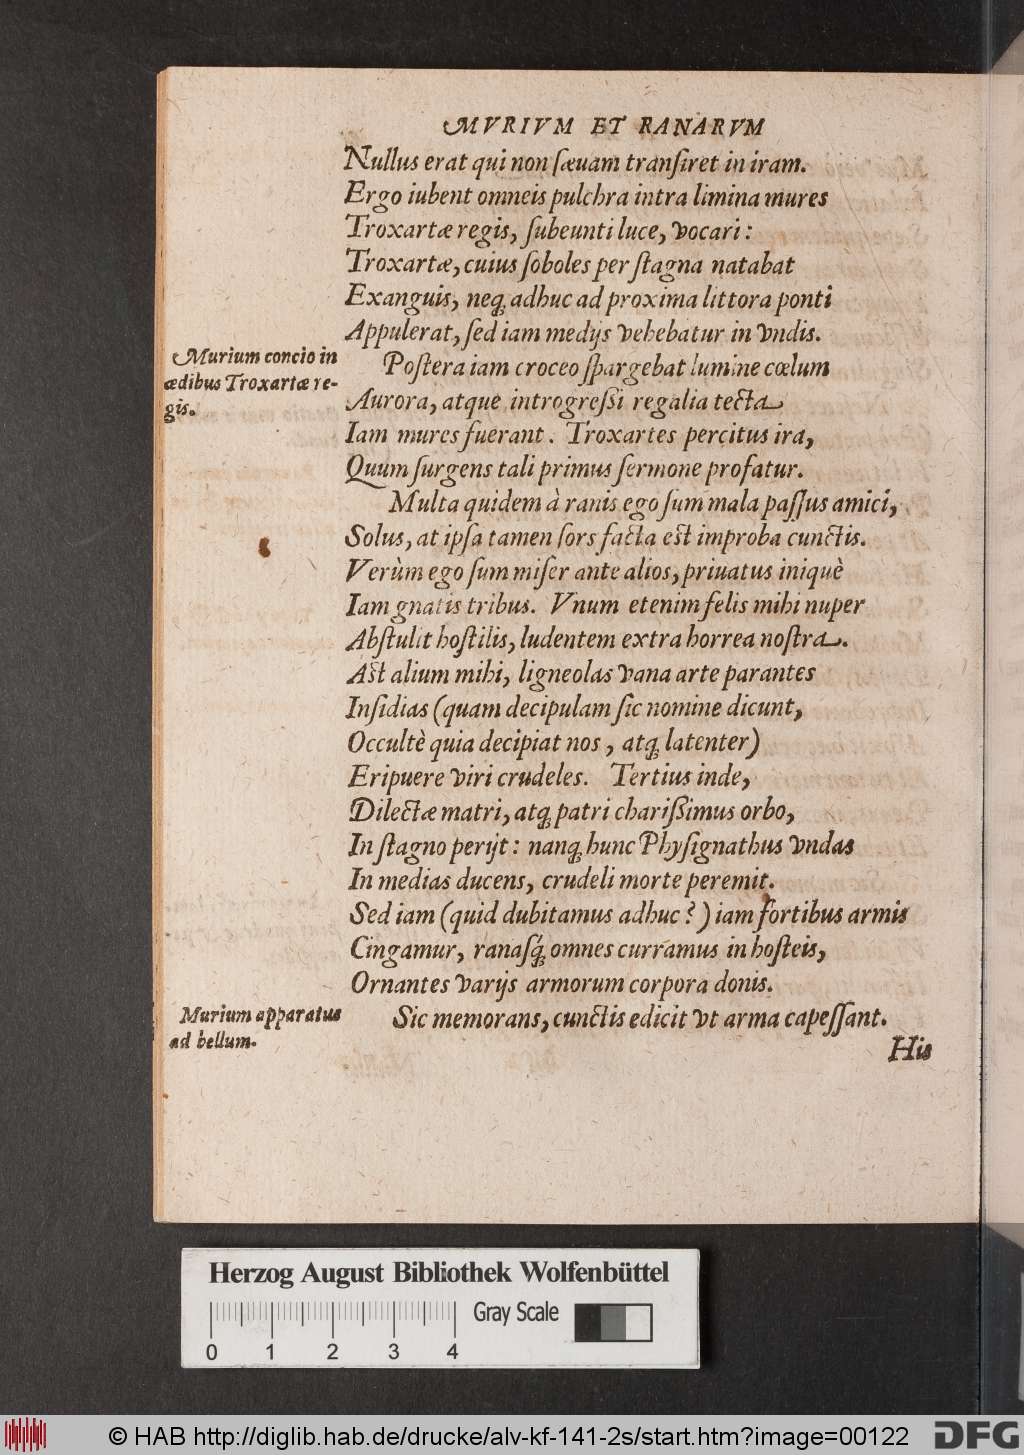 MVRIVM ET RANARVM
Nullus erat qui non ſæuam tranſiret in iram.
Ergo iubent omneis pulchra intra limina mures
Troxartæ regis, ſubeunti luce, vocari:
Troxartæ, cuius ſoboles per ſtagna natabat
Exanguis, neq́; adhuc ad proxima littora ponti
Appulerat, ſed iam medijs vehebatur in vndis.
Murium concio in
ædibus Troxartæ re-
gis.
Poſtera iam croceo ſpargebat lumine cœlum
Aurora, atque introgreſſi regalia tecta
Iam mures fuerant. Troxartes percitus ira,
Quum ſurgens tali primus ſermone profatur.
Multa quidem à ranis ego ſum mala paſſus amici,
Solus, at ipſa tamen ſors facta eſt improba cunctis.
Verùm ego ſum miſer ante alios, priuatus iniquè
Iam gnatis tribus. Vnum etenim felis mihi nuper
Abſtulit hoſtilis, ludentem extra horrea noſtra.
Aſt alium mihi, ligneolas vana arte parantes
Inſidias (quam decipulam ſic nomine dicunt,
Occultè quia decipiat nos, atq; latenter)
Eripuere viri crudeles. Tertius inde,
Dilectæ matri, atq; patri chariſſimus orbo,
In ſtagno perijt: nanq; hunc Phyſignathus vndas
In medias ducens, crudeli morte peremit.
Sed iam (quid dubitamus adhuc?) iam fortibus armis
Cingamur, ranaſq́; omnes curramus in hoſteis,
Ornantes varijs armorum corpora donis.
Murium apparatus
ad bellum.
Sic memorans, cunctis edicit vt arma capeſſant.
His
Herzog August Bibliothek Wolfenbüttel
Gray Scale
0 1 2 3 4
© HAB http://diglib.hab.de/drucke/alv-kf-141-2s/start.htm?image=00122
DFG